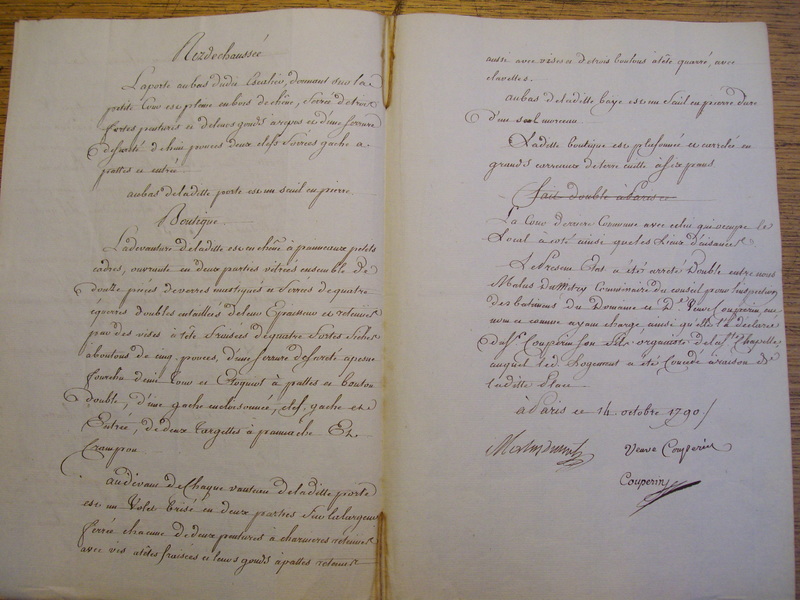 Rez de chaussée
La porte au bas dudit Escalier, donnant sur la
petite Cour est pleine en bois de chêne, ferrée de trois
fortes pentures et de leurs gonds à repos et d'une serrure
de sureté de huit pouces deux clefs forées gache a
pattes et entrée
au bas de ladite porte est un seuil en pierre
Boutique
La devanture de ladite est en chêne à panneaux petits
cadres, ouvrante en deux parties vitrées ensemble de
douze pièces de verres mastiqués et ferrés de quatre
équerres doubles entaillées de leur Epaisseur et retenues
par des vises à tête fraisées de quatre fortes fiches
à boutons de cinq pouces, d'une serrure de sureté a pesne
fourchu demi tour et Cloquiot à pattes et bouton
double, d'une gache encloisonnée, clef, gache et
Entrée, de deux Targettes à pannache Et
Crampon
au devant de Chaque vanteau de ladite porte
est un Volet brisé en deux parties sur la largeur
ferrée chacune de deux pentures à charnieres retenues
avec vis a têtes fraisées et leurs gonds à pattes retenues
aussi avec vises et de trois boulons à tête quarré, avec
clavettes.
au bas de ladite baye est un Seuil en pierre dure
d'un seul morceau
Ladite boutique est plafonnée et carrelée en
grands carreaux de terre cuitte à six pans
Fait double à Paris ce
La Cour derriere Commune avec celui qui occupe le
Local a coté ainsi que les Lieux d'aisances
Le Present Etat a été arreté Double entre nous
Malus Dumitry Commissaire du conseil pour l'inspection
des batimens du Domaine et De Veuve Couperin, au
nom et comme ayant charge ainsi qu'elle l'a déclaré
du Sr. Couperin son fils organiste de la Ste Chapelle
auquel led. Logement a été Concédé à raison de
ladite Place
à Paris ce 14 octobre 1790
Malus Dumitry
Veuve Couperin
Couperin